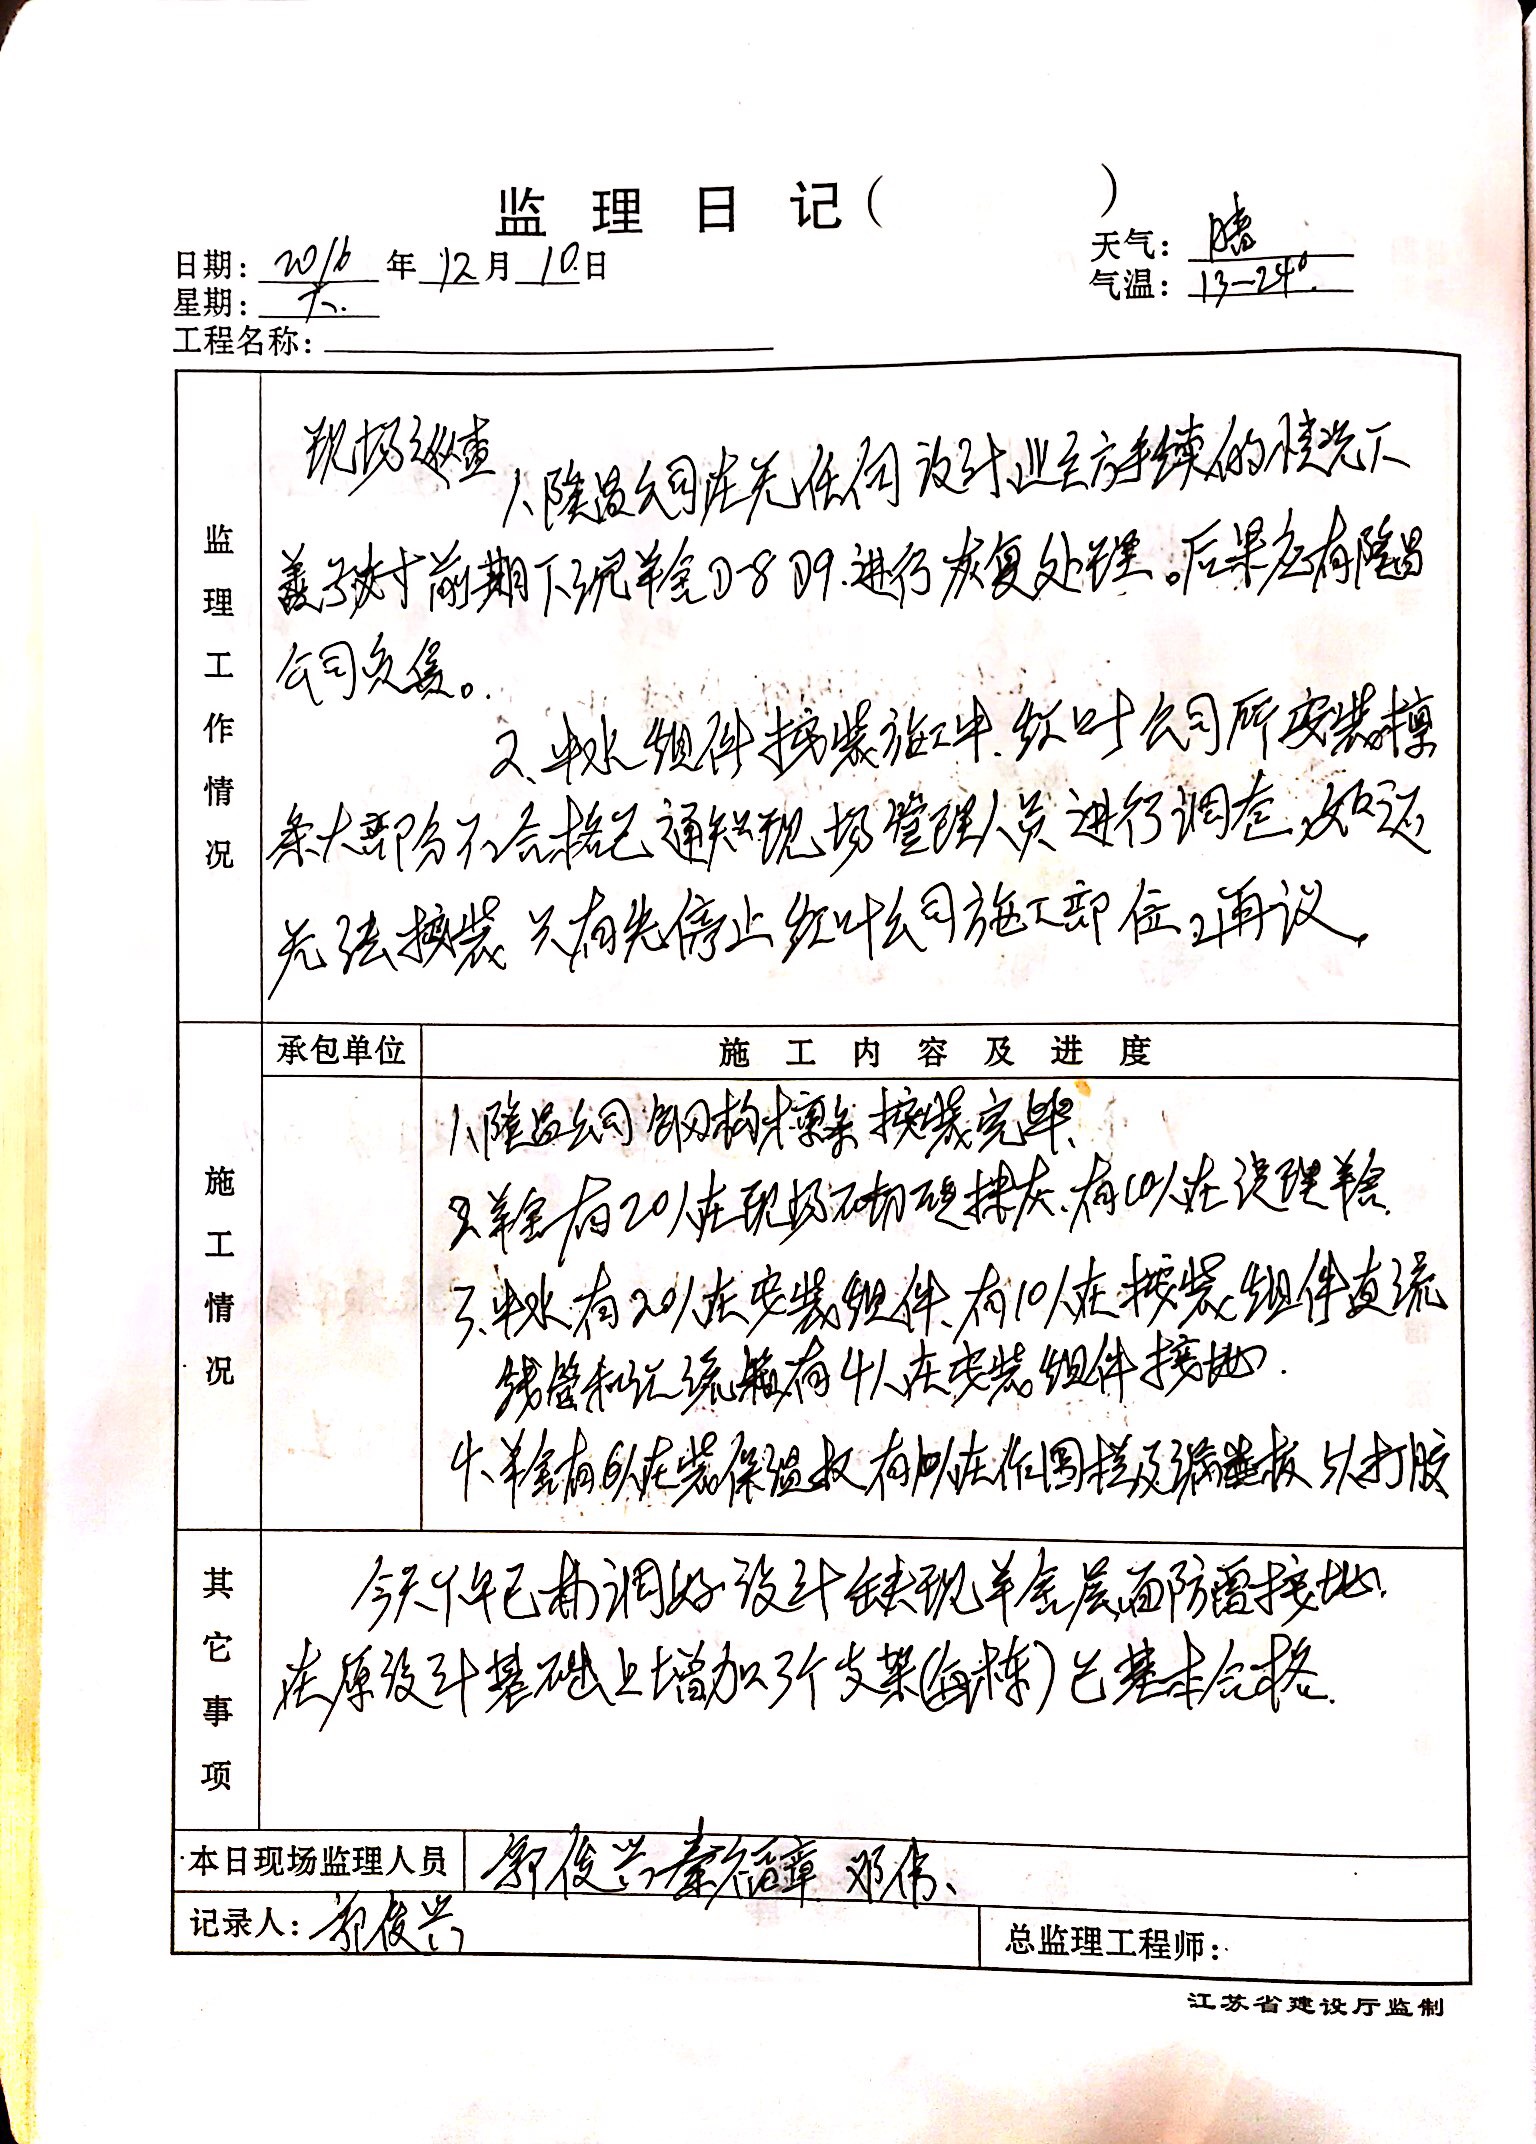 监理日记（ ）
日期：2016年12月10日
天气：晴
星期：六.
气温：13-24°.
工程名称：
监理工作情况
现场巡查
1、隆昌公司在无任何设计业主方手续的情况下
对前期下沉羊舍D-8 D9.进行恢复处理。后果应有隆昌
公司负责。
2、中水组件按装施工中.红叶公司所安装檩
条大部分不合格已通知现场管理人员进行调查,如还
无法按装只有先停止红叶公司施工部位,再议.
承包单位 施工内容及进度
施工情况
1、隆昌公司钢构檩条按装完毕.
2.羊舍有20人在现场砌砖抹灰.有10人在清理羊舍.
3.中水有20人在安装组件、有10人在按装组件直流
线管和汇流箱,有4人在安装组件接地.
4、羊舍有6人在装保温板有10人在作围栏及漏粪板 5人打胶
其它事项
今天下午已协调好设计缺现羊舍层面防雷接地.
在原设计基础上增加3个支架(每栋)已基本合格.
本日现场监理人员 郭俊兴 秦 章 邓伟、
记录人：郭俊兴
总监理工程师：
江苏省建设厅监制